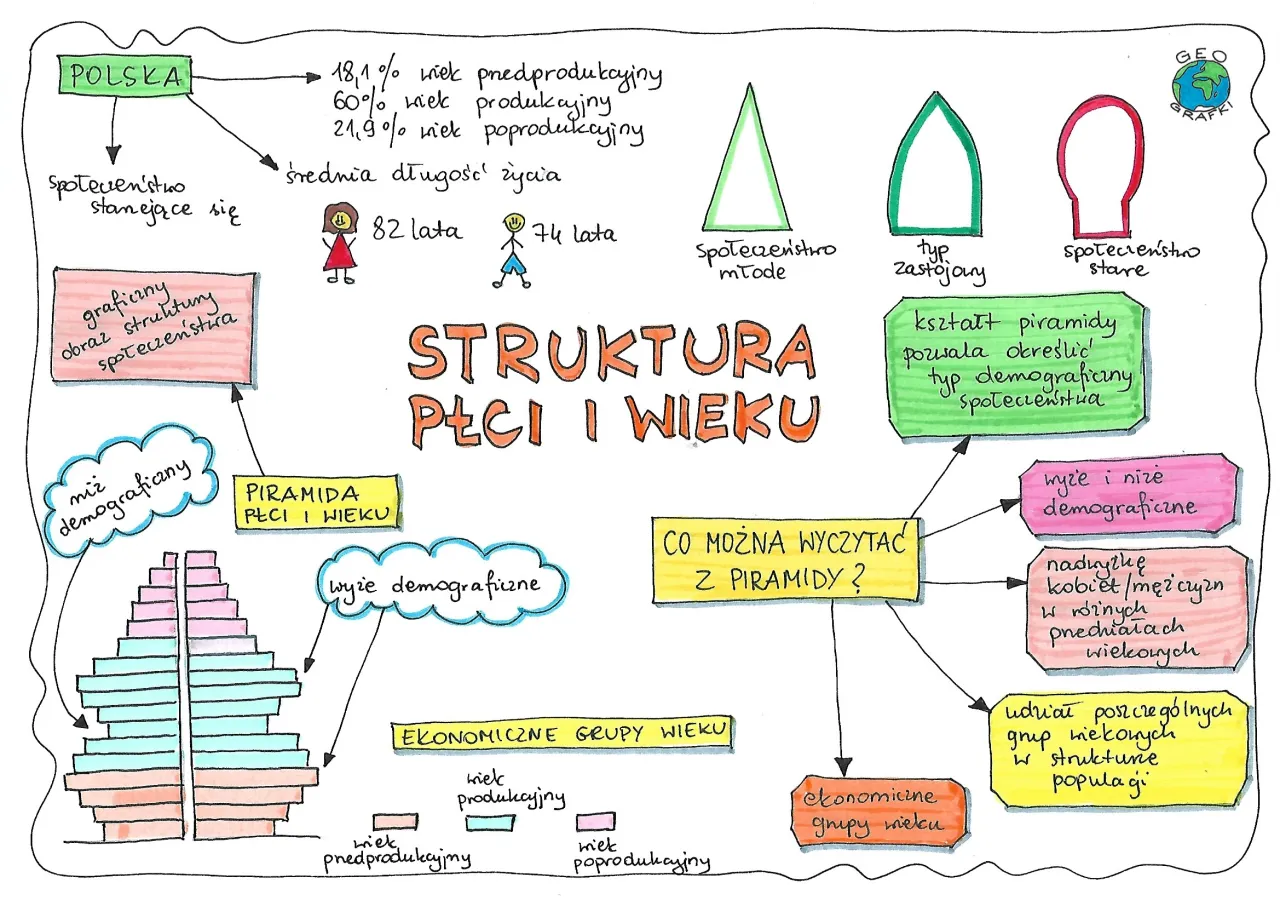 POLSKA
18,1% wiek przedprodukcyjny
60% wiek produkcyjny
21,9% wiek poprodukcyjny
średnia długość życia
82 lata
74 lata
społeczeństwo
starzejące się
społeczeństwo
młode
typ
zastojowy
społeczeństwo
stare
GEO
GRAFKI
graficzny
obraz struktury
społeczeństwa
STRUKTURA
PŁCI I WIEKU
kształt piramidy
pozwala określić
typ demograficzny
społeczeństwa
niż
demograficzny
PIRAMIDA
PŁCI I WIEKU
wyże demograficzne
CO MOŻNA WYCZYTAĆ
Z PIRAMIDY?
wyże i niże
demograficzne
nadwyżkę
kobiet/mężczyzn
w różnych
przedziałach
wiekowych
udział poszczególnych
grup wiekowych
w strukturze
populacji
ekonomiczne
grupy wieku
EKONOMICZNE GRUPY WIEKU
wiek
przedprodukcyjny
wiek
produkcyjny
wiek
poprodukcyjny